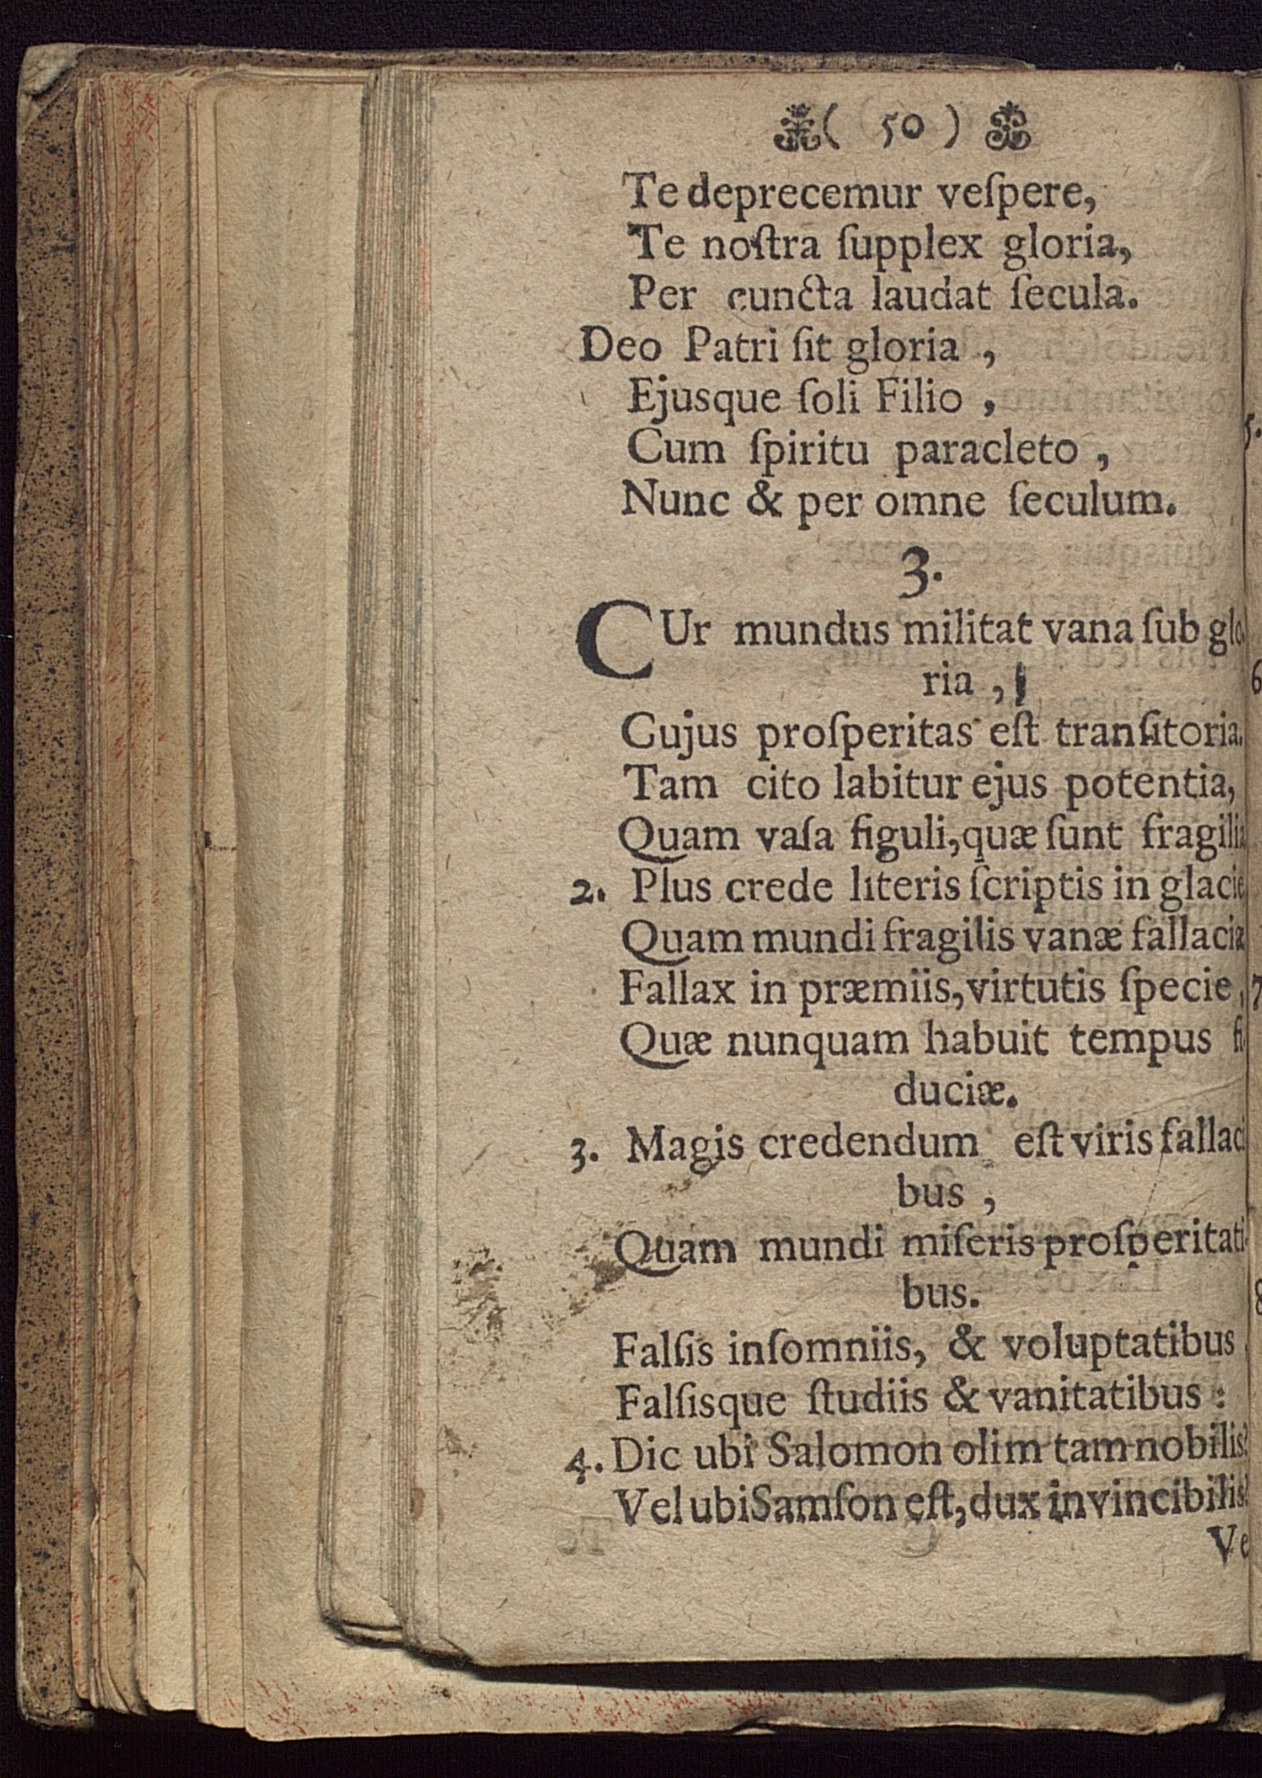 ( 50 )
Te deprecemur veſpere,
Te noſtra ſupplex gloria,
Per cuncta laudat ſecula.
Deo Patri ſit gloria ,
Ejusque ſoli Filio ,
Cum ſpiritu paracleto ,
Nunc & per omne ſeculum.
3.
CUr mundus militat vana ſub glo
ria ,
Cujus proſperitas eſt tranſitoria.
Tam cito labitur ejus potentia,
Quam vaſa figuli,quæ ſunt fragilia
2. Plus crede literis ſcriptis in glacie
Quam mundi fragilis vanæ fallaciæ
Fallax in præmiis,virtutis ſpecie,
Quæ nunquam habuit tempus fi
duciæ.
3. Magis credendum eſt viris fallaci
bus ,
Quam mundi miſeris proſperitati
bus.
Falſis inſomniis, & voluptatibus
Falſisque ſtudiis & vanitatibus :
4. Dic ubi Salomon olim tam nobilis?
Vel ubi Samſon eſt, dux invincibilis?
Ve
5.
6
7
8